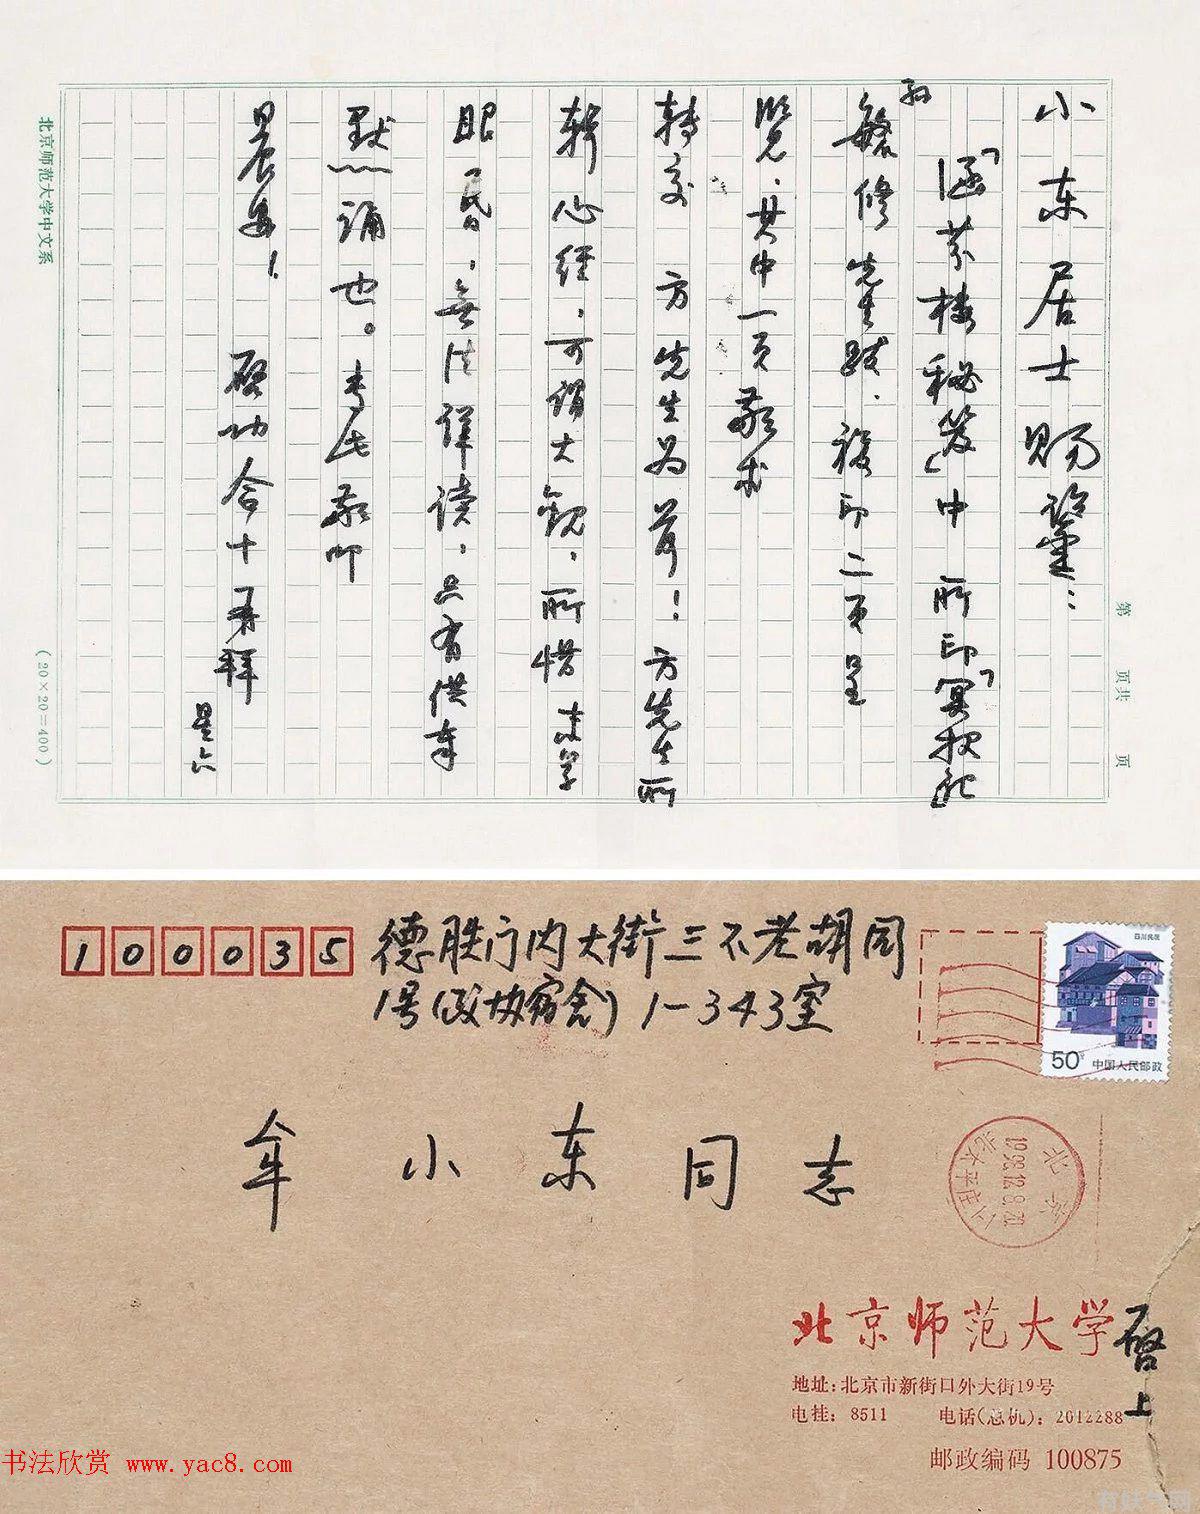 小东居士赐鉴：
「涵芬楼秘笈」中所印「冥报记」
孙
毓修先生跋，複印二页呈
览，其中一页敬求
转交 方先生为荷！方先生所
辑心经，可谓大观，所惜未学
眼昏，无法详读，只有供奉
默默诵也。专此敬叩
晨安！ 启功合十再拜
星六
北京师范大学中文系
(20×20=400)
第 页共 页
100035 德胜门内大街三不老胡同
1号(政协宿舍) 1-343室
四川民居
50分 中国人民邮政
牟小东同志
北京
北太平庄
北京师范大学 启上
地址: 北京市新街口外大街19号
电挂: 8511 电话(总机): 2012288
邮政编码 100875
书法欣赏 www.yac8.com